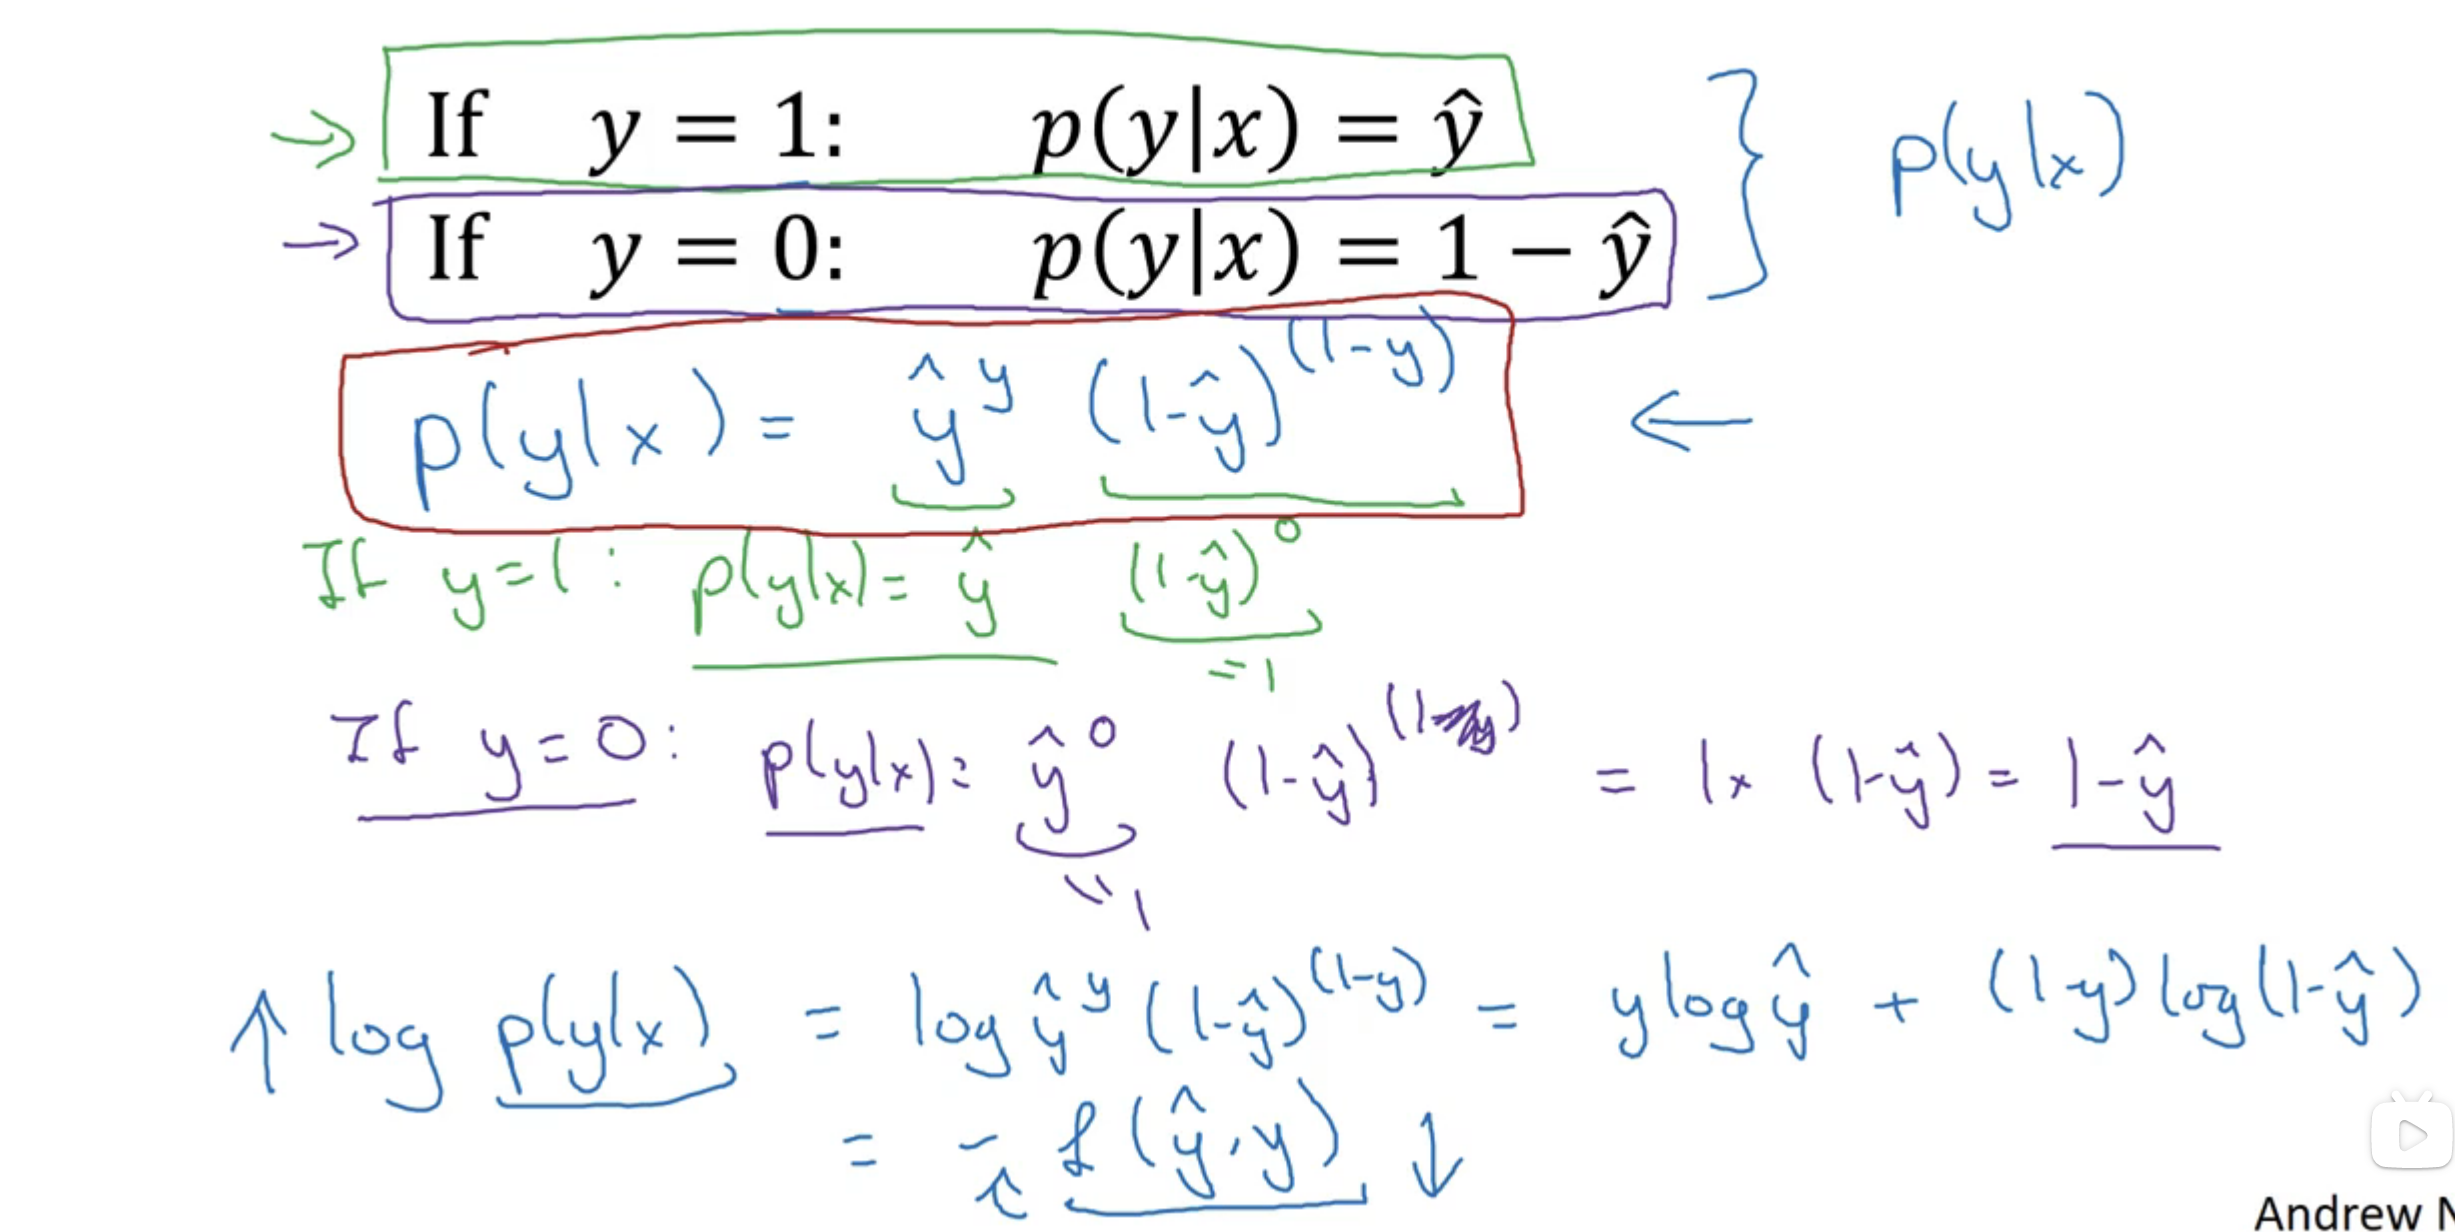 If y = 1: p(y|x) = ŷ
If y = 0: p(y|x) = 1 − ŷ
} p(y|x)
p(y|x) = ŷ^y (1-ŷ)^(1-y) ←
If y=1: p(y|x) = ŷ (1-ŷ)^0
=1
If y=0: p(y|x) = ŷ^0 (1-ŷ)^(1-y) = 1 × (1-ŷ) = 1-ŷ
=1
↑ log p(y|x) = log ŷ^y (1-ŷ)^(1-y) = y log ŷ + (1-y) log(1-ŷ)
= - ℒ(ŷ, y) ↓
Andrew